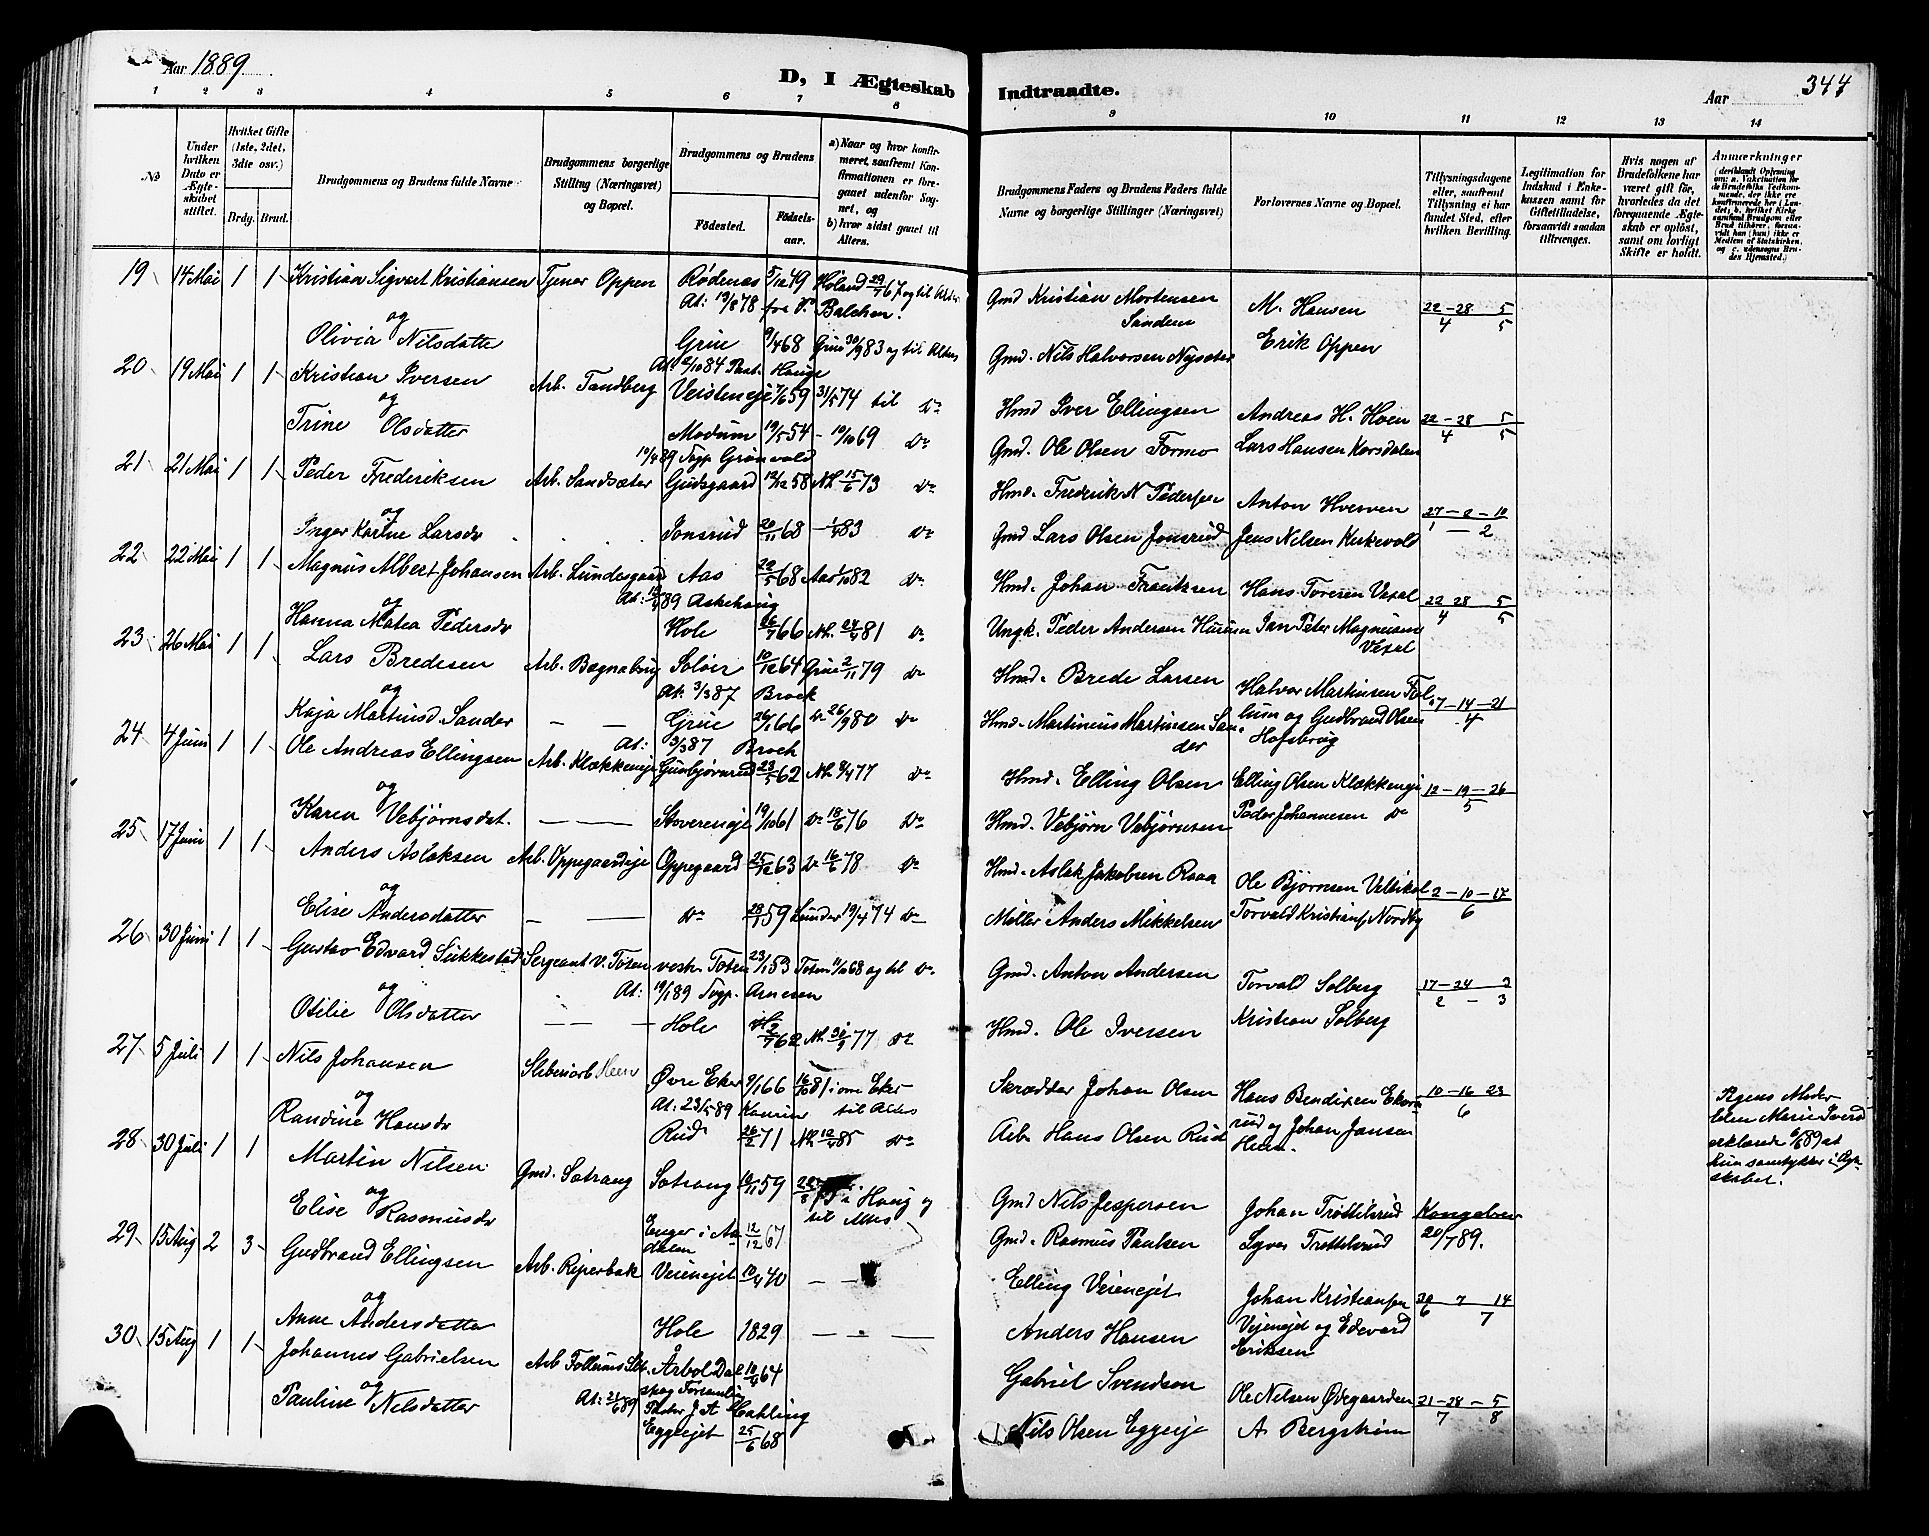 Aar 1889
D, I Ægteskab Indtraadte.
344
Aar
1 2 3 4 5 6 7 8 9 10 11 12 13 14
No
Under hvilken Dato er Ægteskabet stiftet.
Hvilket Gifte (1ste, 2det, 3die osv.)
Brdg. Brud.
Brudgommens og Brudens fulde Navne
Brudgommens borgerlige Stilling (Næringsvei) og Bopæl.
Brudgommens og Brudens
Fødested.
Fødselsaar.
a) Naar og hvor konfirmeret, saafremt Konfirmationen er foregaaet udenfor Sognet, og
b) hvor sidst gaaet til Alters.
Brudgommens Faders og Brudens Faders fulde Navne og borgerlige Stillinger (Næringsvei)
Forlovernes Navne og Bopæl.
Tillysningsdagene eller, saafremt Tillysning ei har fundet Sted, efter hvilken Bevilling.
Legitimation for Indskud i Enkekassen samt for Giftetilladelse, forsaavidt saadan tiltrænges.
Hvis nogen af Brudefolkene har været gift før, hvorledes da det foregaaende Ægteskab er opløst, samt om lovligt Skifte er holdt.
Anmærkninger
19 14 Mai 1 1 Kristian Sigvart Kristiansen Tjener Oppen Rødenas 5/12 49 Høland 29/7 67 og til Alters Gmd Kristian Mortensen Sanden M. Hansen 22-28 5 / 4 5
At: 19/8 78 fra Balchen.
og
Olivia Nilsdatter Grue 9/4 68 Grue 30/9 83 og til Alters Gmd. Nils Halvorsen Nysæter Erik Oppen
20 19 Mai 1 1 Kristian Iversen Arb. Tandberg Veisteneje 7/6 59 31/5 74 til do Hmd Iver Ellingsen Andreas H. Hoen 22-28 5 / 4 5
og
Trine Olsdatter Modum 19/5 54 - 10/10 69 do Gmd. Ole Olsen Formo Lars Hansen Korsdalen
21 21 Mai 1 1 Peder Frederiksen Arb. Sandsæter Gudsgaard 12/12 58 Nh 15/6 73 do Hmd. Frederik N Pedersen Anton Hverven 27-2-10 / 1 - 2
og
Inger Karine Larsdr Jonsrud 20/11 68 - 1/4 83 do Gmd Lars Olsen Jonsrud Jens Nelsen Kukevold
22 22 Mai 1 1 Magnus Albert Johansen Arb. Lundesgaard Aas 20/5 68 Aas 1/10 82 do Hmd. Johan Frantsen Hans Toresen Vexal 22 28 5 / 4 5
og
Hanna Matea Pedersdr Hole 26/7 66 Nh. 24/4 81 do Ungk. Peder Andersen Jan Peter Magnusen Vexal
23 26 Mai 1 1 Lars Bredesen Arb. Bægnabrug Soløer 10/12 64 Grue 2/11 79 do Hmd. Brede Larsen Halvor Martinsen Follum og Gudbrand Olsen Hofsbrug 7-14-21 / 4
og At: 3/3 87 Brock
Kaja Martinsd Sander Grue 26/1 66 do 26/9 80 do Hmd. Martinius Martinsen Sander
At: 3/3 87 Broch
24 4 Juni 1 1 Ole Andreas Ellingsen Arb. Klækkeneje Gunbjørnrud 23/5 62 Nh. 8/4 77 do Hmd. Elling Olsen Elling Olsen Klækkeneje 12-19-26 / 5
og
Karen Vebjørnsdat. Stovereneje 19/10 61 do 18/6 76 do Hmd. Vebjørn Vebjørnsen Peder Johannesen do
25 17 Juni 1 1 Anders Aslaksen Arb. Oppegaardseje Oppegaard 25/12 63 do 16/6 78 do Hmd. Aslak Jakobsen Raaa Ole Bjørnsen Veksal 2-10-17 / 6
og
Elise Andersdatter do 59 Lunder 19/4 74 do Møller Anders Mikkelsen Torvald Kristians. Nordby
26 30 Juni 1 1 Gustav Edvard Sukkestad Sergeant V. Toten vestr. Toten 23/1 53 Toten 11/10 68 og til do Gmd. Anton Andersen Torvald Solberg 17-24 3 / 2 - 3
og At: 19/1 89 Sogp. Arnesen
Otilie Olsdatter Hole 2/7 62 Nh. 30/9 77 do Hmd. Ole Iversen Kristian Solberg
27 5 Juli 1 1 Nils Johansen Sliberiarb Heen Øvre Eker 9/1 66 16/10 81 i øvre Eker til Alters Skrædder Johan Olsen Hans Bendixen Ekornrud og Johan Jansen Heen. 10-16 23 / 6
og At: 23/5 89
Randine Hansdr Rud 26/2 71 Nh 10/4 85 do Arb Hans Olsen Rud
Pigens Moder Elen Marie erklærede 6/6 89 at hun samtykker i Ægteskabet.
28 30 Juli 1 1 Martin Nilsen Gmd. Sætrang Sætrang 10/11 59 i Haug og til Alters Gmd Nils Jespersen Johan Trøttelsrud Kongebrev 20/7 89.
og
Elise Rasmusdr Enger i Aadalen 12/12 67 Gmd. Rasmus Paulsen Syver Trøttelsrud
29 15 Aug 2 3 Gudbrand Ellingsen Arb. Riperbak Veieneje 10/4 40 Elling Veienejet Johan Kristiansen Vejenejet og Edevard Eriksen 30 7 14 / 6 7
og
Anne Andersdatter Hole 1829 Anders Hansen
30 15 Aug 1 1 Johannes Gabrielsen Arb Follums Slib. Årbol Dal 10/4 64 Gabriel Svendson Ole Nelsen Ødegaarden 21-28-5 / 7 8
og At: 21/6 89
Pauline Nilsdatter Eggeejet 25/6 68 Nils Olsen Eggeeje A Bergstrøm